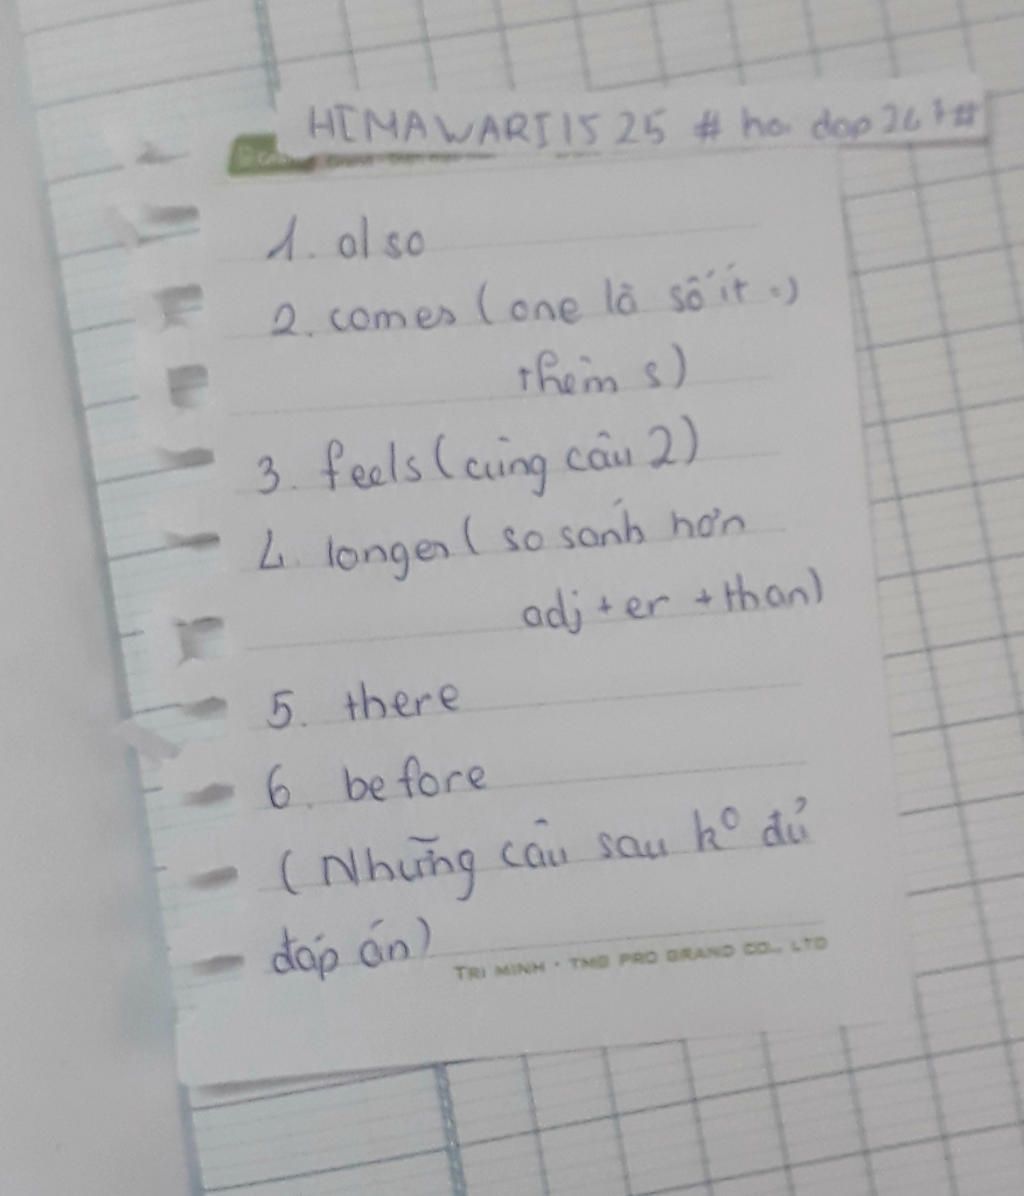 HIMAWARI1525 # hoi dap 24h #
1. also
2. comes (one là số ít :)
thêm s)
3. feels (cùng câu 2)
4. longer (so sánh hơn
adj + er + than)
5. there
6. before
(Những câu sau ko đủ
đáp án)
TRI MINH · TMG PRO GRAND CO., LTD